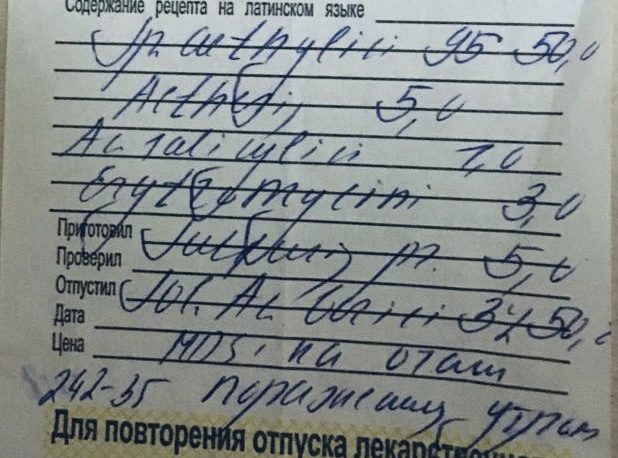 Содержание рецепта на латинском языке
Sp. aethylici 95 50,0
Aetheri, 5,0
Ac salicylici 1,0
Erythromycini 3,0
Приготовил Sulfuri, pr. 5,0
Проверил
Отпустил Sol. Ac borici 3% 50,0
Дата
Цена MDS, на очаги
242-35 поражения, утром
Для повторения отпуска